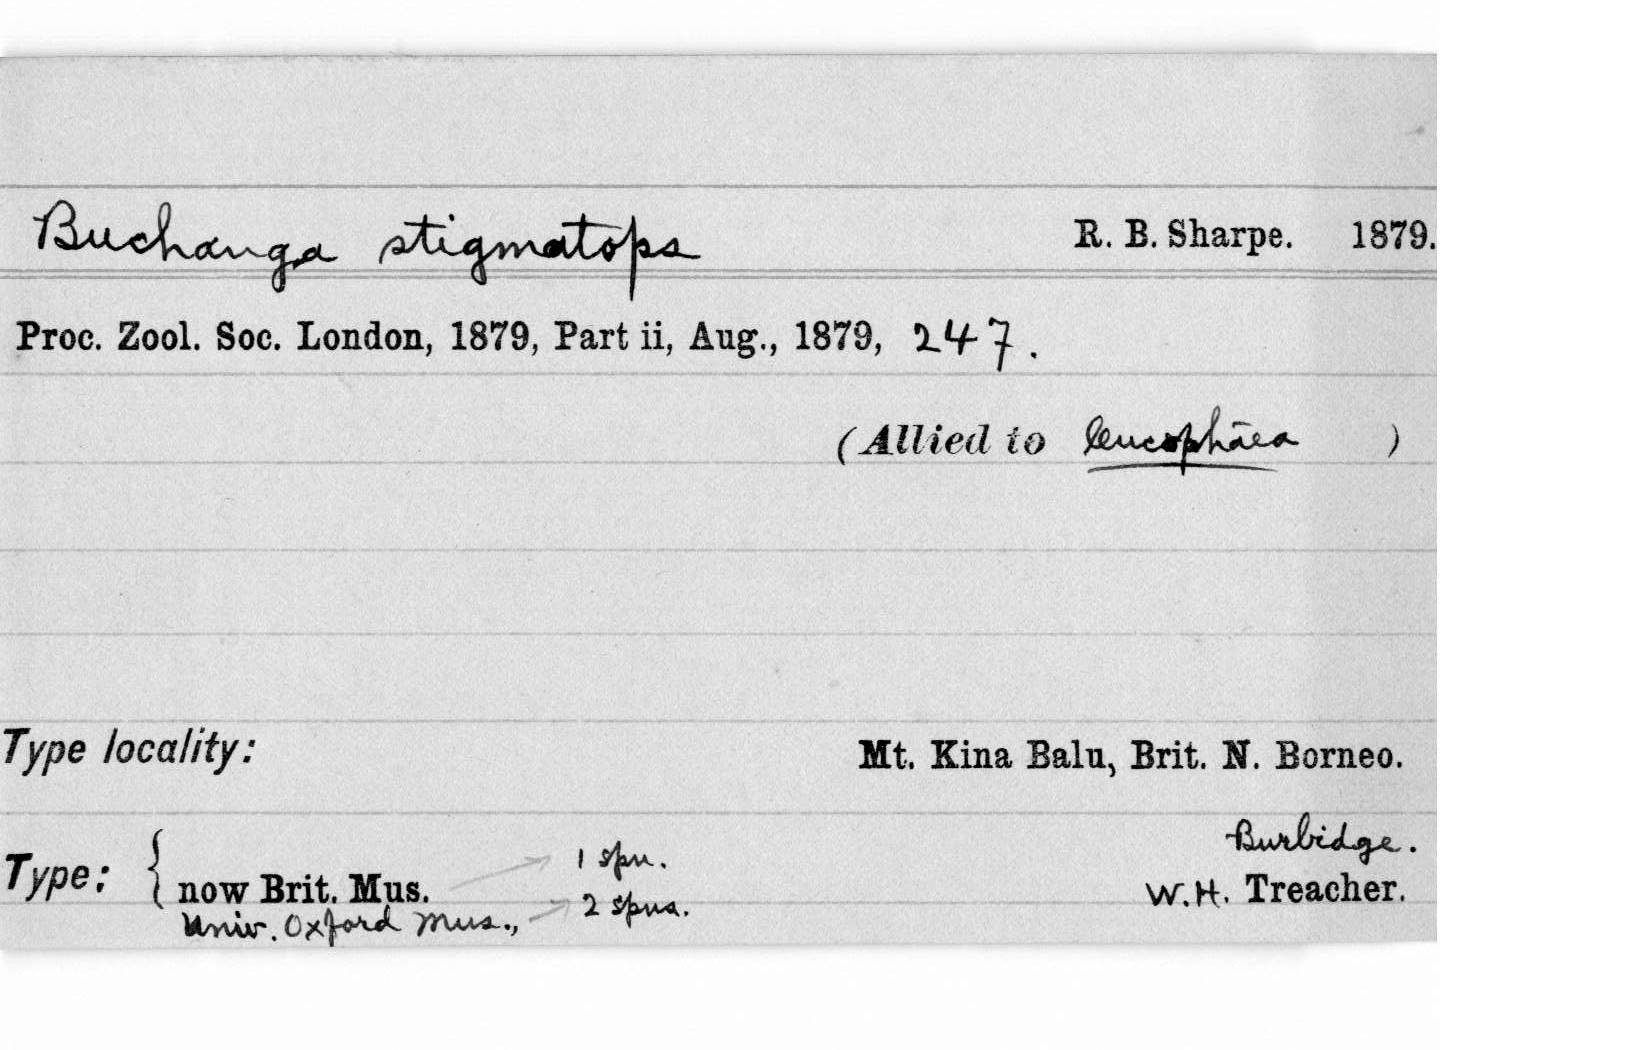 Buchanga stigmatops R. B. Sharpe. 1879.
Proc. Zool. Soc. London, 1879, Part ii, Aug., 1879, 247.
(Allied to leucophæa )
Type locality: Mt. Kina Balu, Brit. N. Borneo.
Burbidge.
1 spn.
Type: { now Brit. Mus. W.H. Treacher.
Univ. Oxford Mus., 2 spns.